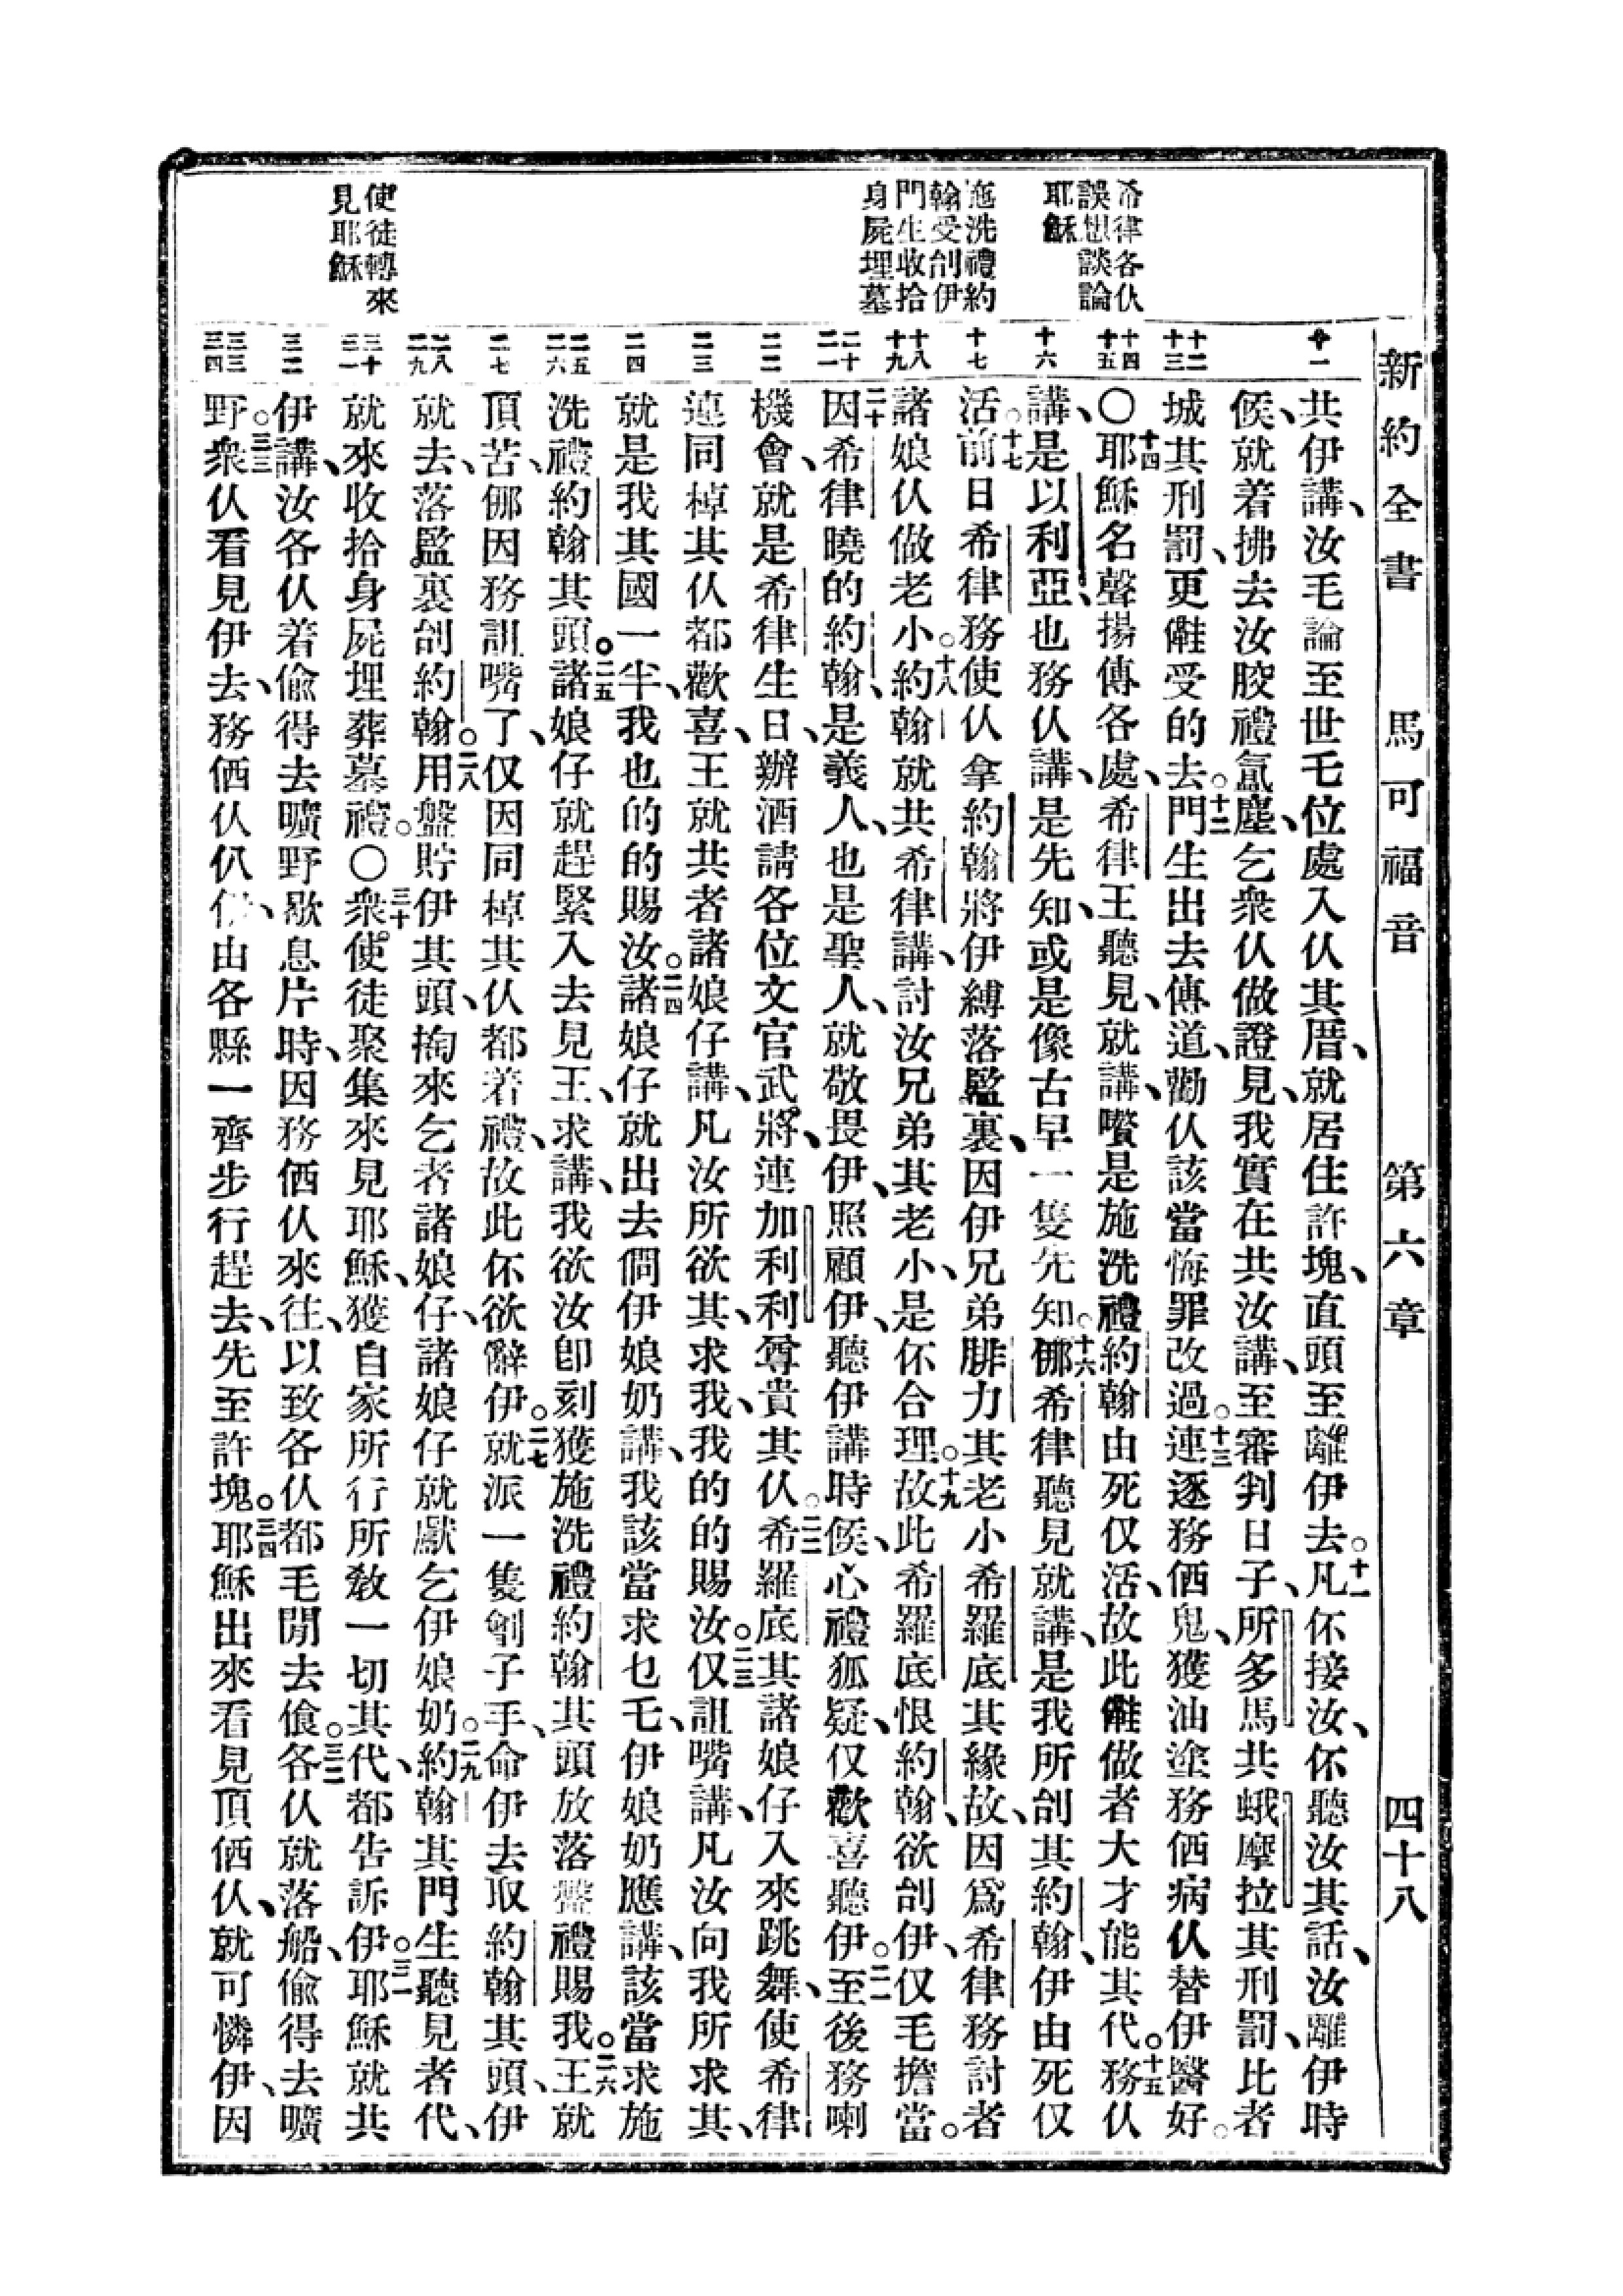 新約全書　馬可福音　第六章　四十八
希律各仸
誤想談論
耶穌
施洗禮約
翰受刣伊
門生收拾
身屍埋墓
使徒轉來
見耶穌
十一
十二
十三
十四
十五
十六
十七
十八
十九
二十
二一
二二
二三
二四
二五
二六
二七
二八
二九
三十
三一
三二
三三
三四
共伊講、汝毛論至世乇位處入仸其厝、就居住許塊、直頭至離伊去。十一凡伓接汝、伓聽汝其話、汝離伊時
候、就着拂去汝骹禮氲塵、乞衆仸做證見、我實在共汝講、至審判日子、所多馬共蛾摩拉其刑罰、比者
城其刑罰、更𠹌受的去。十二門生出去傳道、勸仸該當悔罪改過。十三連逐務価鬼、獲油塗務価病仸替伊醫好。
〇十四耶穌名聲揚傳各處、希律王聽見、就講、嚽是施洗禮約翰由死仅活、故此做者大才能其代。十五務仸
講、是以利亞、也務仸講、是先知、或是像古早一隻先知。十六㑚希律聽見就講、是我所刣其約翰、伊由死仅
活。十七前日希律務使仸拿約翰將伊縛落監裏、因伊兄弟腓力其老小希羅底其緣故、因爲希律務討者
諸娘仸做老小。十八約翰就共希律講、討汝兄弟其老小、是伓合理。十九故此、希羅底恨約翰、欲刣伊、仅毛擔當。
二十因希律曉的約翰、是義人、也是聖人、就敬畏伊、照顧伊、聽伊講時候、心禮狐疑、仅歡喜聽伊。二一至後務喇
機會、就是希律生日、辦酒請各位文官武將、連加利利尊貴其仸。二二希羅底其諸娘仔入來跳舞、使希律
連同棹其仸都歡喜、王就共者諸娘仔講、凡汝所欲其、求我、我的的賜汝。二三仅詛嘴講、凡汝向我所求其、
就是我其國一半、我也的的賜汝。二四諸娘仔就出去問伊娘奶講、我該當求乜乇、伊娘奶應講、該當求施
洗禮約翰其頭。二五諸娘仔就趕緊入去見王、求講、我欲汝卽刻獲施洗禮約翰其頭放落盤禮賜我。二六王就
頂苦、㑚因務詛嘴了、仅因同棹其仸都着禮、故此伓欲辭伊。二七就派一隻劊子手、命伊去取約翰其頭、伊
就去、落監裏刣約翰。二八用盤貯伊其頭、掏來乞者諸娘仔、諸娘仔就獻乞伊娘奶。二九約翰其門生聽見者代、
就來收拾身屍埋葬墓禮。〇三十衆使徒聚集來見耶穌、獲自家所行所敎一切其代、都告訴伊。三一耶穌就共
伊講、汝各仸着偷得去曠野歇息片時、因務価仸來往、以致各仸都毛閒去飱。三二各仸就落船、偷得去曠
野。三三衆仸看見伊去、務価仸仈伊、由各縣一齊步行趕去、先至許塊。三四耶穌出來看見頂価仸、就可憐伊、因